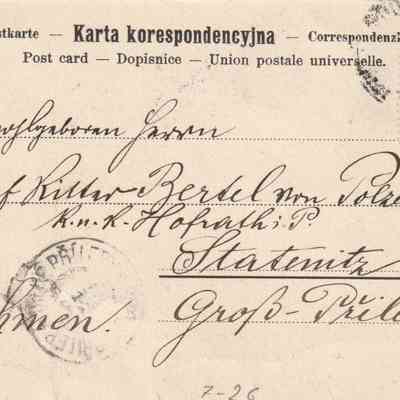 stkarte — Karta korespondencyjna — Correspondenzk
Post card — Dopisnice — Union postale universelle.
ohlgeboren Herrn
f Ritter Bertel von Polze
k. u. k. Hofrath i. P.
Statenitz
PŘÍLEP
hmen. Groß-Přile
7-26